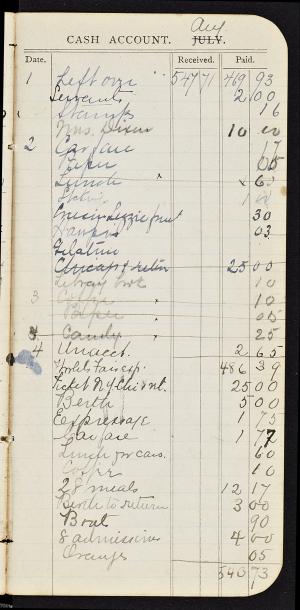 Aug.
CASH ACCOUNT. JULY.
Date. Received. Paid.
1 Left over 547 71 469 93
Servants 2 00
Stamps 16
Mrs. Dixon 10 00
2 Carfare 17
Paper 05
Lunch 60
30
03
Gelatine
Chicago & return 25 00
Library book 10
3 Coffee 10
Paper 05
3 Candy 25
4 Unacct. 2 65
World's Fair exp. 486 39
Ticket N.Y. Chi. &rt. 25 00
Berth 5 00
Expressage 1 75
Carfare 1 77
Lunch for cars. 60
Coffee 10
28 meals 12 17
Berth to return 3 00
Boat 90
8 admissions 4 00
Oranges 05
540 73